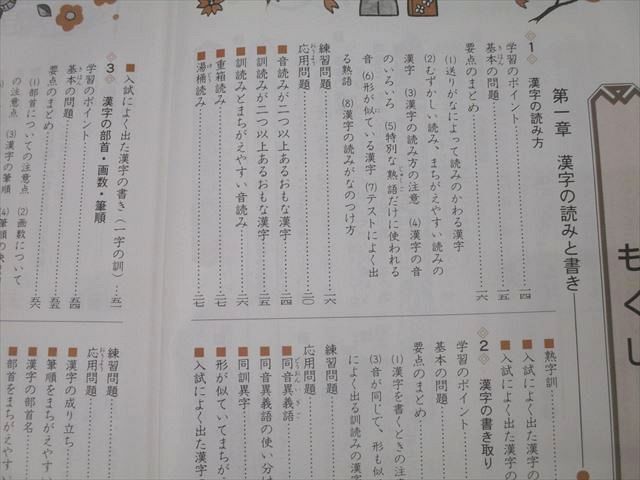 もくじ
第一章　漢字の読みと書き
1　漢字の読み方
学習のポイント……一四
基本の問題……一五
要点のまとめ……一六
(1)送りがなによって読みのかわる漢字
(2)むずかしい読み、まちがえやすい読みの
漢字　(3)漢字の読み方の注意　(4)漢字の音
のいろいろ　(5)特別な熟語だけに使われる
音　(6)形が似ている漢字　(7)テストによく出
る熟語　(8)漢字の読みがなのつけ方
練習問題……一六
応用問題……二〇
■音読みが二つ以上あるおもな漢字……二四
■訓読みが二つ以上あるおもな漢字……二五
■訓読みとまちがえやすい音読み……二六
■重箱読み……二七
■湯桶読み……二七
■熟字訓
■入試によく出た漢字の
■入試によく出た漢字の
2　漢字の書き取り
学習のポイント
基本の問題
要点のまとめ
(1)漢字を書くときの注
(3)音が同じで、形も似
によく出る訓読みの漢
練習問題
応用問題
■同音異義語
■同音異義語の使い分け
■同訓異字
■形が似ていてまちが
■入試によく出た漢字
■入試によく出た漢字の書き(一字の訓)……五一
3　漢字の部首・画数・筆順
学習のポイント……五四
基本の問題……五五
要点のまとめ……五六
(1)部首についての注意点　(2)画数について
の注意点　(3)漢字の筆順　(4)筆順の決
練習問題
応用問題
■漢字の成り立ち
■筆順をまちがえやす
■漢字の部首名
■部首をまちがえやす